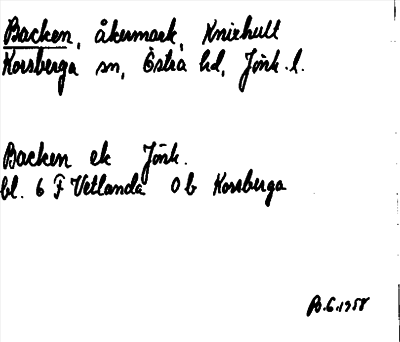 Backen, åkermark, Knixhult
Korsberga sn, Östra hd, Jönk. l.
Backen ek Jönk.
bl. 6 F Vetlanda 0 b Korsberga